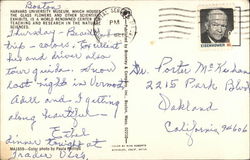 Boston
HARVARD UNIVERSITY MUSEUM, WHICH HOUSES
THE GLASS FLOWERS AND OTHER SCIENTIFIC
EXHIBITS, IS A WORLD RENOWNED CENTER OF
TEACHING AND RESEARCH IN THE NATURAL
SCIENCES.
PM
EISENHOWER
Thursday - Beautiful
trip - colors. Excellent
bus and driver also
tour guide. Snow
last night in Vermont
and I getting
along beautiful -
Ethel
dinner tonight at
Trader Vics
Dr. Porter
2215 Park Blvd
Oakland
California 94606
Color photo by